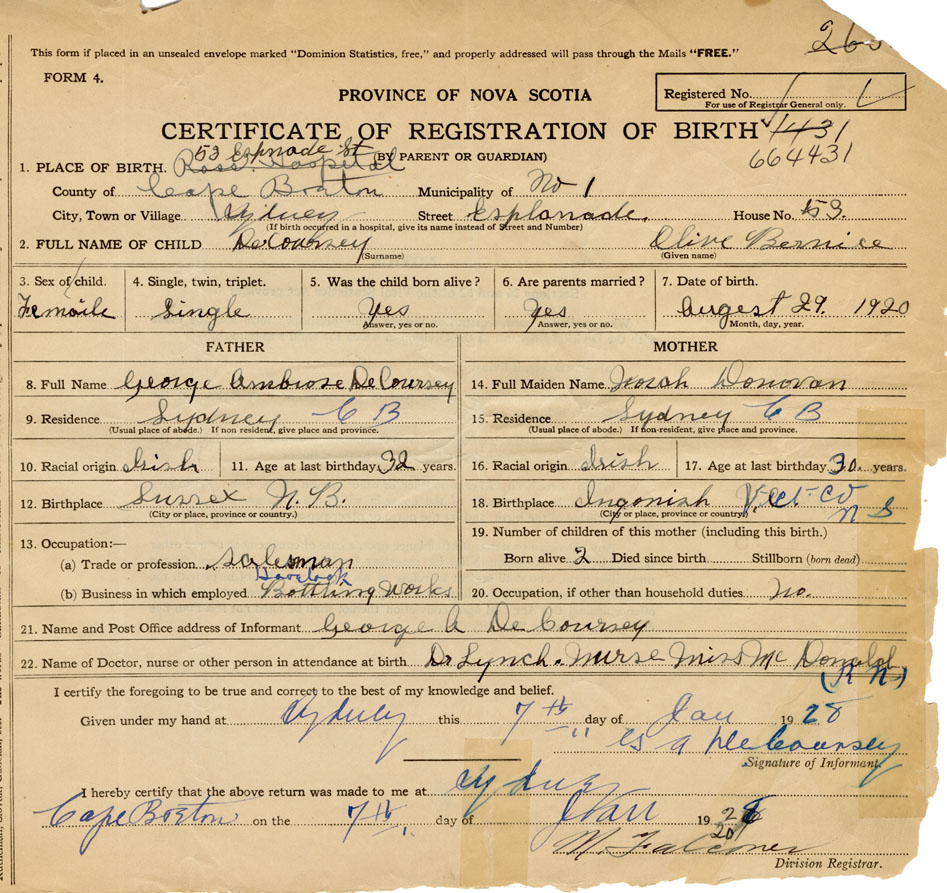 260
This form if placed in an unsealed envelope marked "Dominion Statistics, free," and properly addressed will pass through the Mails "FREE."
FORM 4.
PROVINCE OF NOVA SCOTIA
Registered No.
For use of Registrar General only.
CERTIFICATE OF REGISTRATION OF BIRTH 1431
664431
53 Esplnade St (BY PARENT OR GUARDIAN)
1. PLACE OF BIRTH. Ross Hospital
County of Cape Breton Municipality of No 1
City, Town or Village Sydney Street Esplanade. House No. 53.
(If birth occurred in a hospital, give its name instead of Street and Number)
2. FULL NAME OF CHILD DeCoursey Olive Bernice
(Surname) (Given name)
3. Sex of child. 4. Single, twin, triplet. 5. Was the child born alive? 6. Are parents married? 7. Date of birth.
Femaile Single Yes Yes August 29. 1920
Answer, yes or no. Answer, yes or no. Month, day, year.
FATHER MOTHER
8. Full Name George Ambrose DeCoursey 14. Full Maiden Name Norah Donovan
9. Residence Sydney C B 15. Residence Sydney C B
(Usual place of abode.) If non resident, give place and province. (Usual place of abode.) If non-resident, give place and province.
10. Racial origin Irish 11. Age at last birthday 32 years. 16. Racial origin Irish 17. Age at last birthday 30. years.
12. Birthplace Sussex N. B. 18. Birthplace Ingonish Vict- Co N S
(City or place, province or country.) (City or place, province or country)
19. Number of children of this mother (including this birth.)
13. Occupation:—
Born alive 2 Died since birth Stillborn (born dead)
(a) Trade or profession salesman
Havelock
(b) Business in which employed Bottling Works 20. Occupation, if other than household duties No.
21. Name and Post Office address of Informant George A DeCoursey
22. Name of Doctor, nurse or other person in attendance at birth Dr Lynch. Nurse Miss McDonald
(R N.)
I certify the foregoing to be true and correct to the best of my knowledge and belief.
Given under my hand at Sydney this 7th day of Jan 1928
G A DeCoursey
Signature of Informant.
I hereby certify that the above return was made to me at Sydney
Cape Breton on the 7th day of Jan 1928
M. Falconer
Division Registrar.